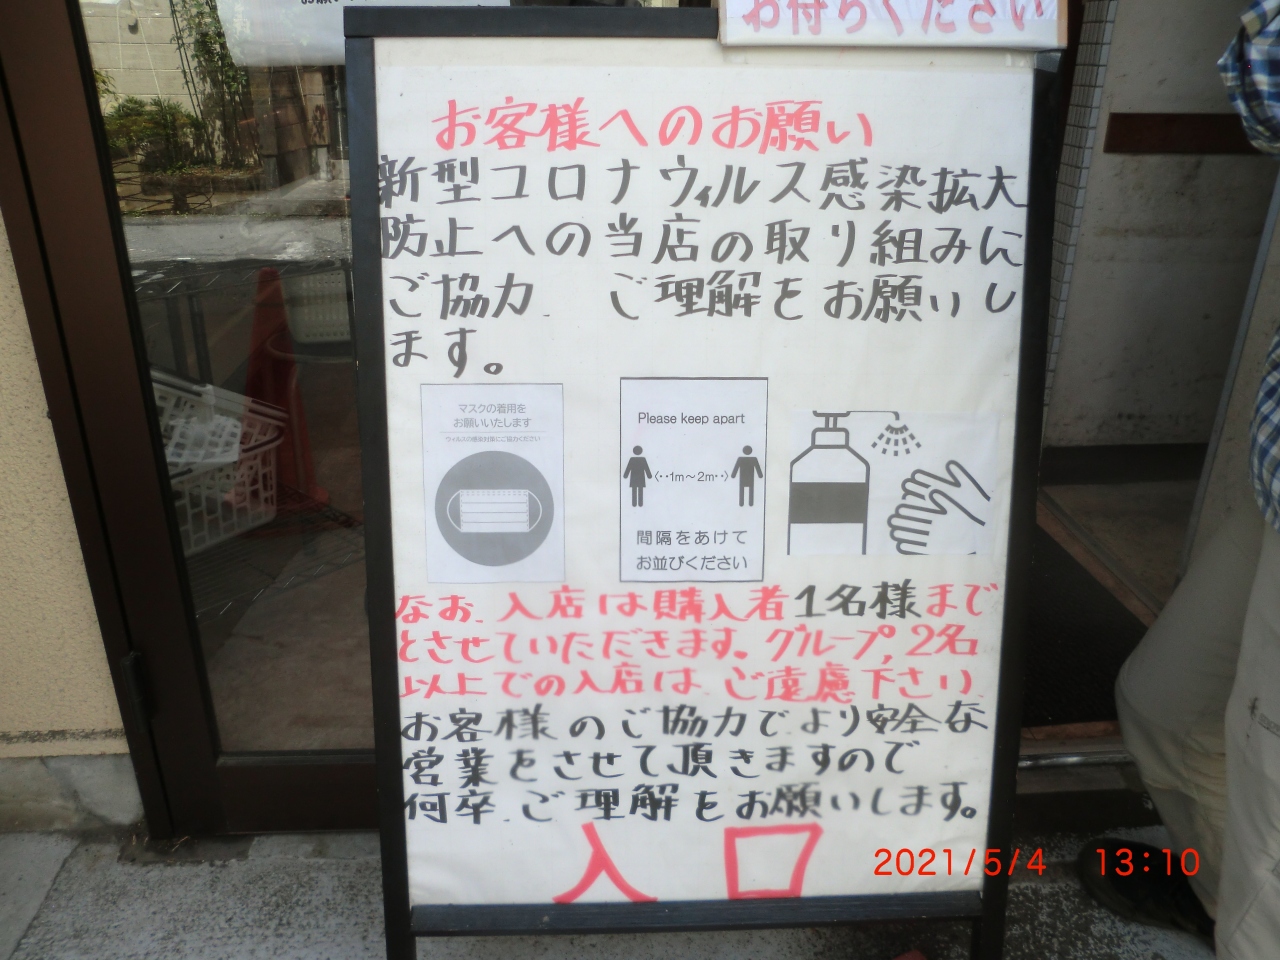 お待ちください
お客様へのお願い
新型コロナウィルス感染拡大
防止への当店の取り組みに
ご協力、ご理解をお願いし
ます。
マスクの着用を
お願いいたします
ウィルスの感染対策にご協力ください
Please keep apart
<‥1m～2m‥>
間隔をあけて
お並びください
なお、入店は購入者1名様まで
とさせていただきます。グループ、2名
以上での入店は、ご遠慮下さい、
お客様のご協力でより安全な
営業をさせて頂きますので
何卒、ご理解をお願いします。
入口
2021/5/4 13:10